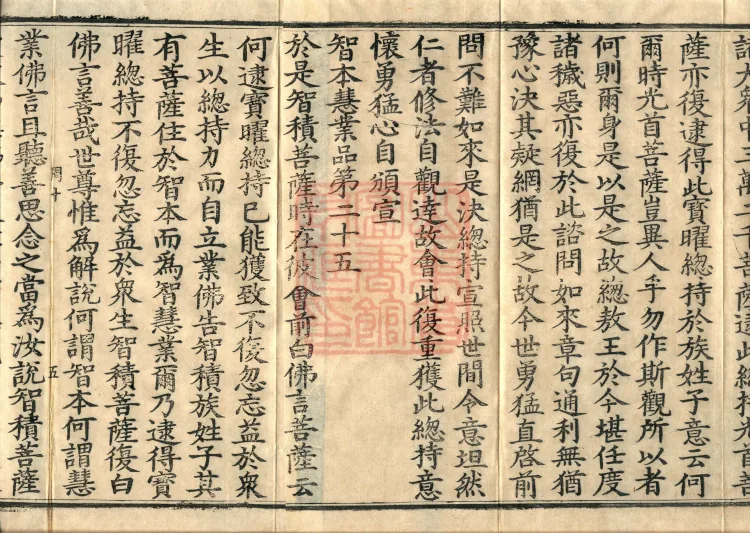 薩亦復逮得此寶曜總持於族姓子意云何
爾時光首菩薩豈異人乎勿作斯觀所以者
何則爾身是以是之故總敖王於今堪任度
諸穢惡亦復於此諮問如來章句通利無猶
豫心決其疑網猶是之故今世勇猛直啓前
問不難如來是決總持宣照世間令意坦然
仁者修法自觀達故會此復重獲此總持意
懷勇猛心自頒宣
智本慧業品第二十五
於是智積菩薩時在彼會前白佛言菩薩云
何逮寶曜總持已能獲致不復忽忘益於衆
生以總持力而自立業佛告智積族姓子其
有菩薩住於智本而爲智慧業爾乃逮得寶
曜總持不復忽忘益於衆生智積菩薩復白
佛言善哉世尊惟爲解說何謂智本何謂慧
五
業佛言且聽善思念之當爲汝說智積菩薩